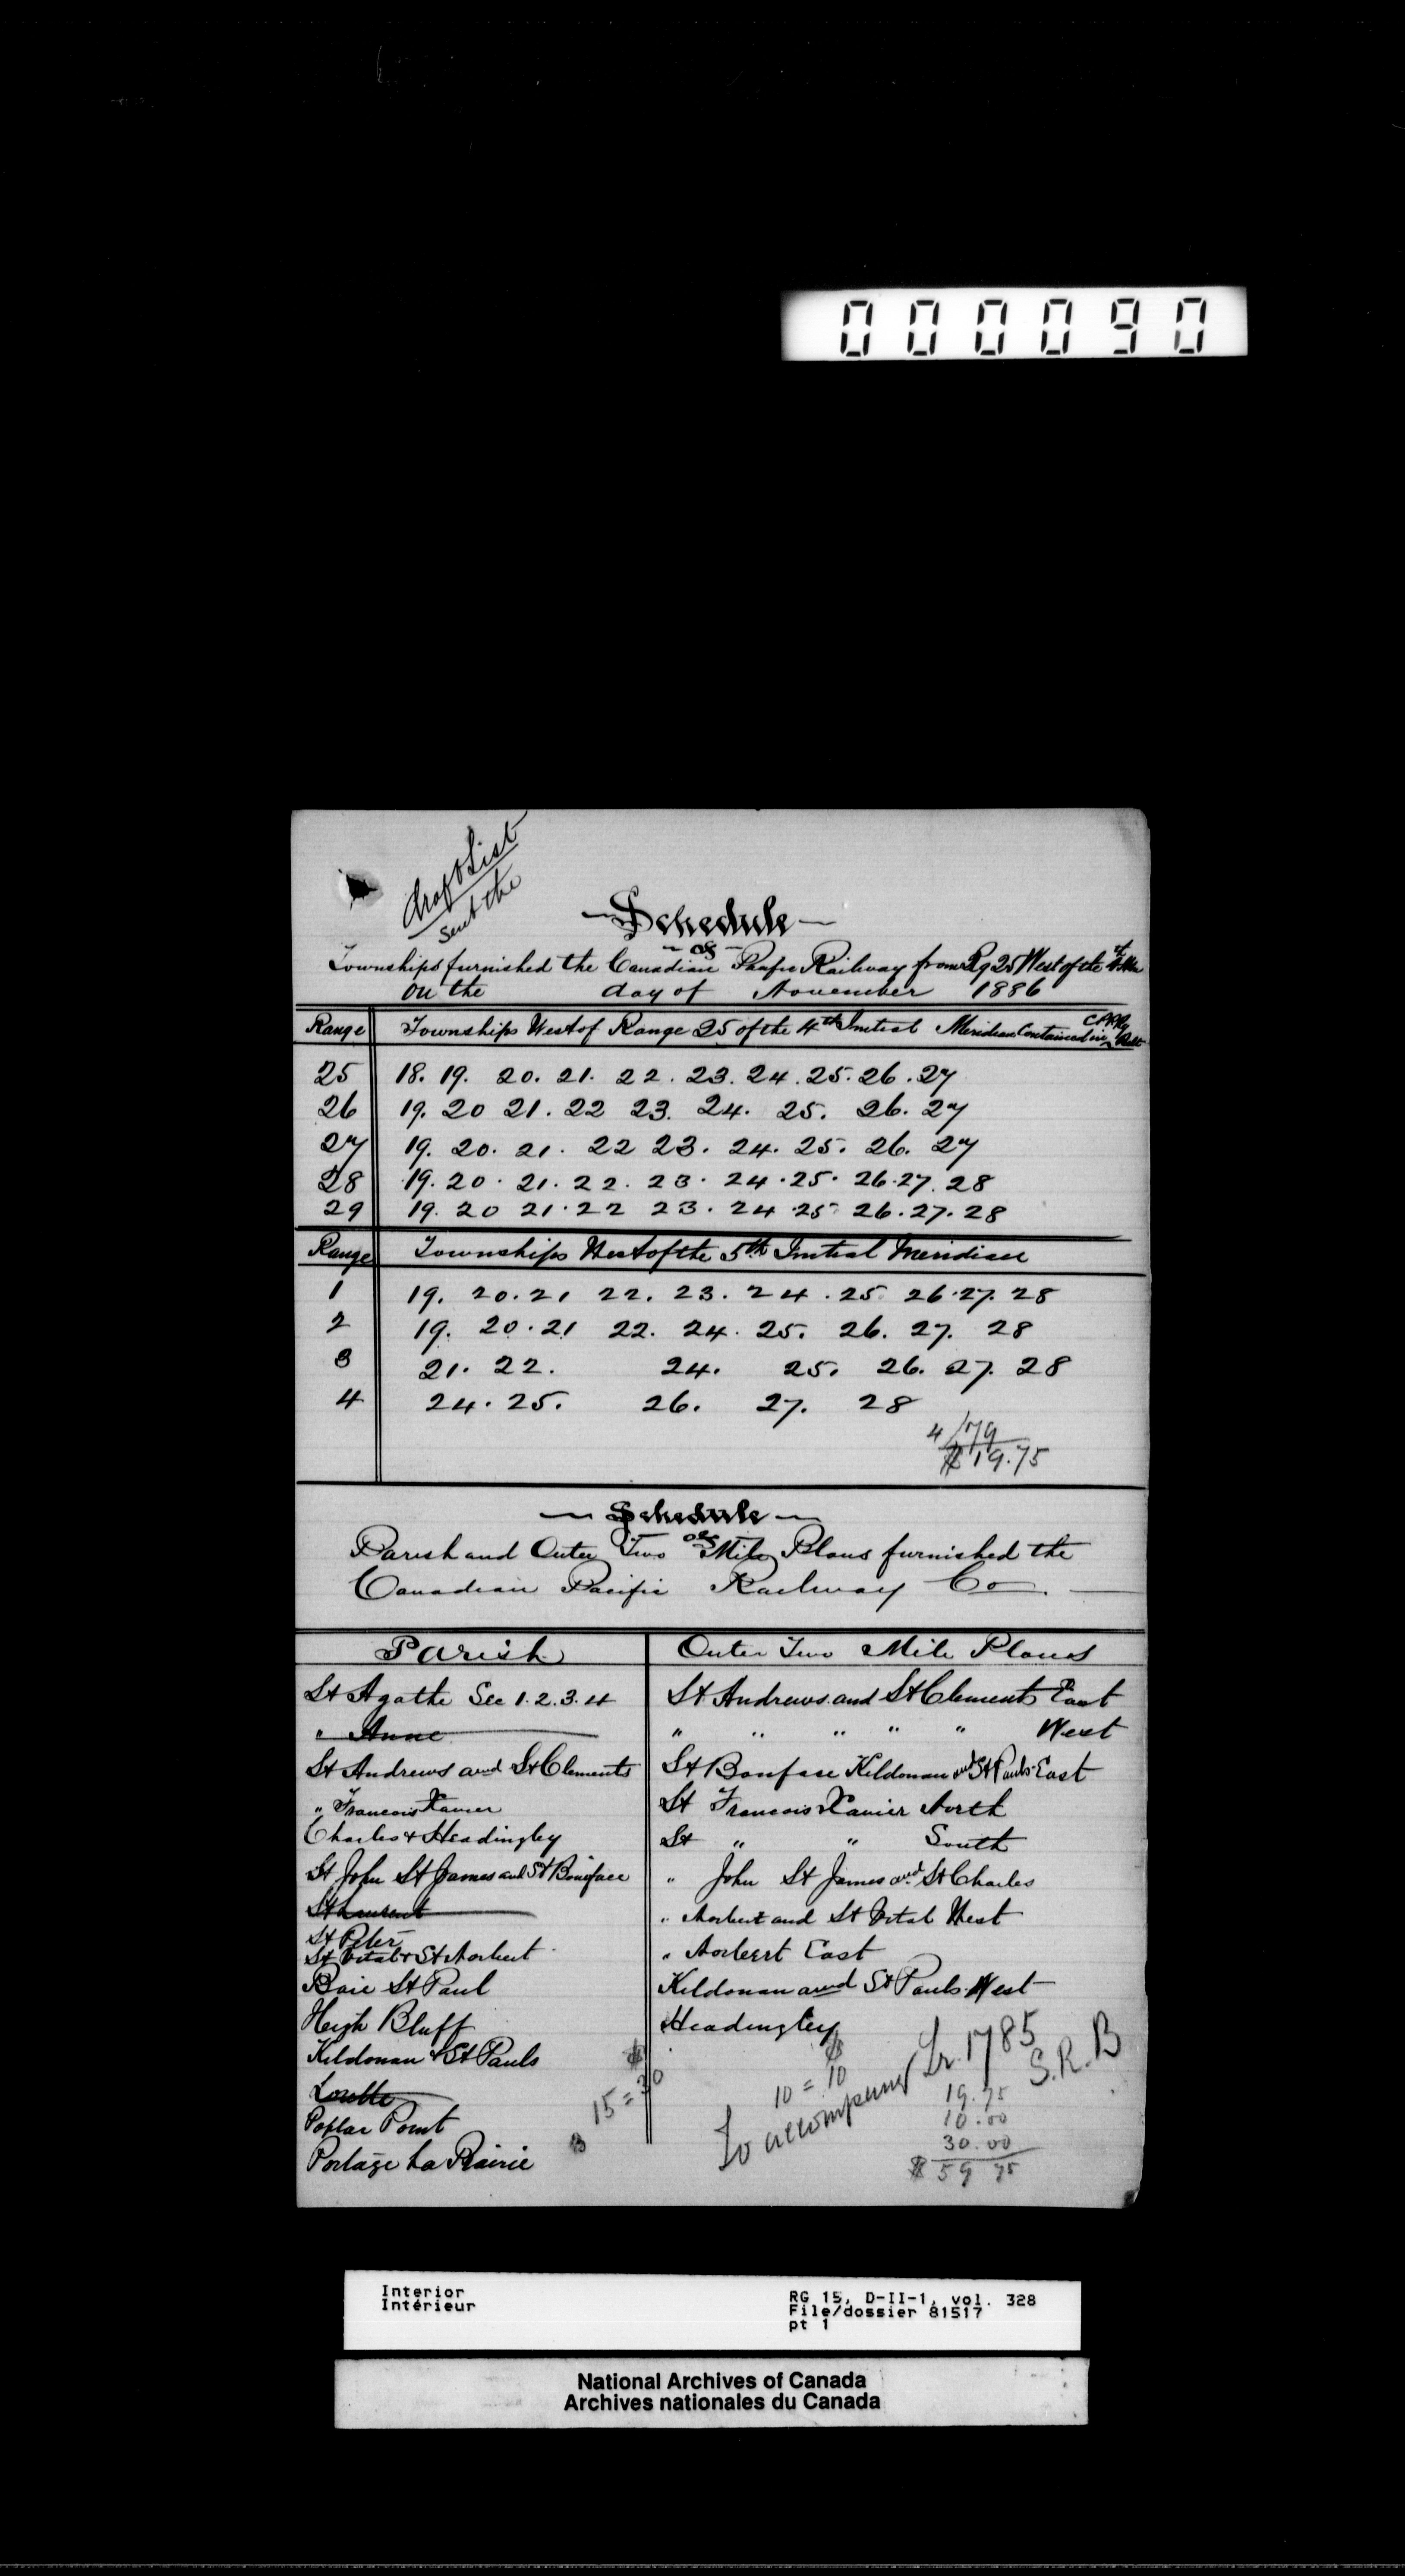 000090
Draft List
Sent the
Schedule
of
Townships furnished the Canadian Pacific Railway from Rg 25 West of the 4th Mer
on the day of November 1886
Range Townships West of Range 25 of the 4th Initial Meridian Contained in C.P.Ry Belt
25 18. 19. 20. 21. 22. 23. 24. 25. 26. 27
26 19. 20 21. 22 23. 24. 25. 26. 27
27 19. 20. 21. 22 23. 24. 25. 26. 27
28 19. 20. 21. 22. 23. 24. 25. 26. 27. 28
29 19. 20 21. 22 23. 24 25 26. 27. 28
Range Townships West of the 5th Initial Meridian
1 19. 20. 21 22. 23. 24. 25 26. 27. 28
2 19. 20. 21 22. 24. 25. 26. 27. 28
3 21. 22. 24. 25. 26. 27. 28
4 24. 25. 26. 27. 28
4/79
$19.75
Schedule
of
Parish and Outer Two Mile Plans furnished the
Canadian Pacific Railway Co.
Parish Outer Two Mile Plans
St Agathe Sec 1. 2. 3. 4 St Andrews and St Clements East
" Anne " " " " " West
St Andrews and St Clements St Boniface Kildonan and St Pauls East
" Francois Xavier St Francois Xavier North
Charles & Headingley St " " South
St John St James and St Boniface " John St James and St Charles
St Laurent " Norbert and St Vital West
St Peter
St Vital & St Norbert " Norbert East
Baie St Paul Kildonan and St Pauls West
High Bluff Headingley
Kildonan & St Pauls
Lorette
Poplar Point
Portage La Prairie
$
15 = 30
$
10 = 10
To accompany Lr. 1785
S.R.B
19.75
10.00
30.00
$59 75
Interior
Intérieur
RG 15, D-II-1, vol. 328
File/dossier 81517
pt 1
National Archives of Canada
Archives nationales du Canada